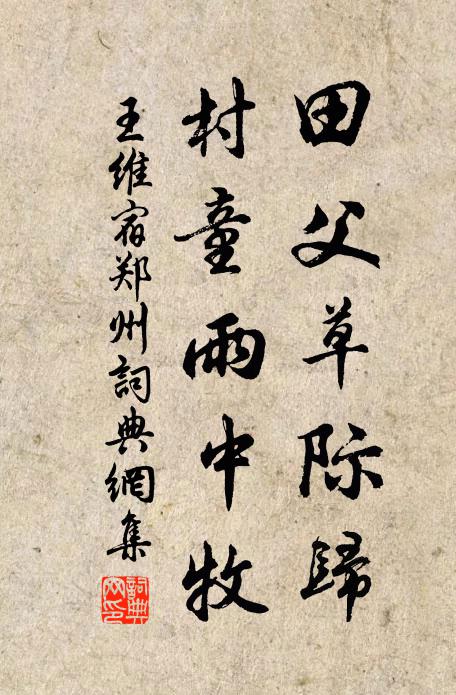 田父草际歸
村童雨中牧
王維宿郑州詞典網集
詞典网印